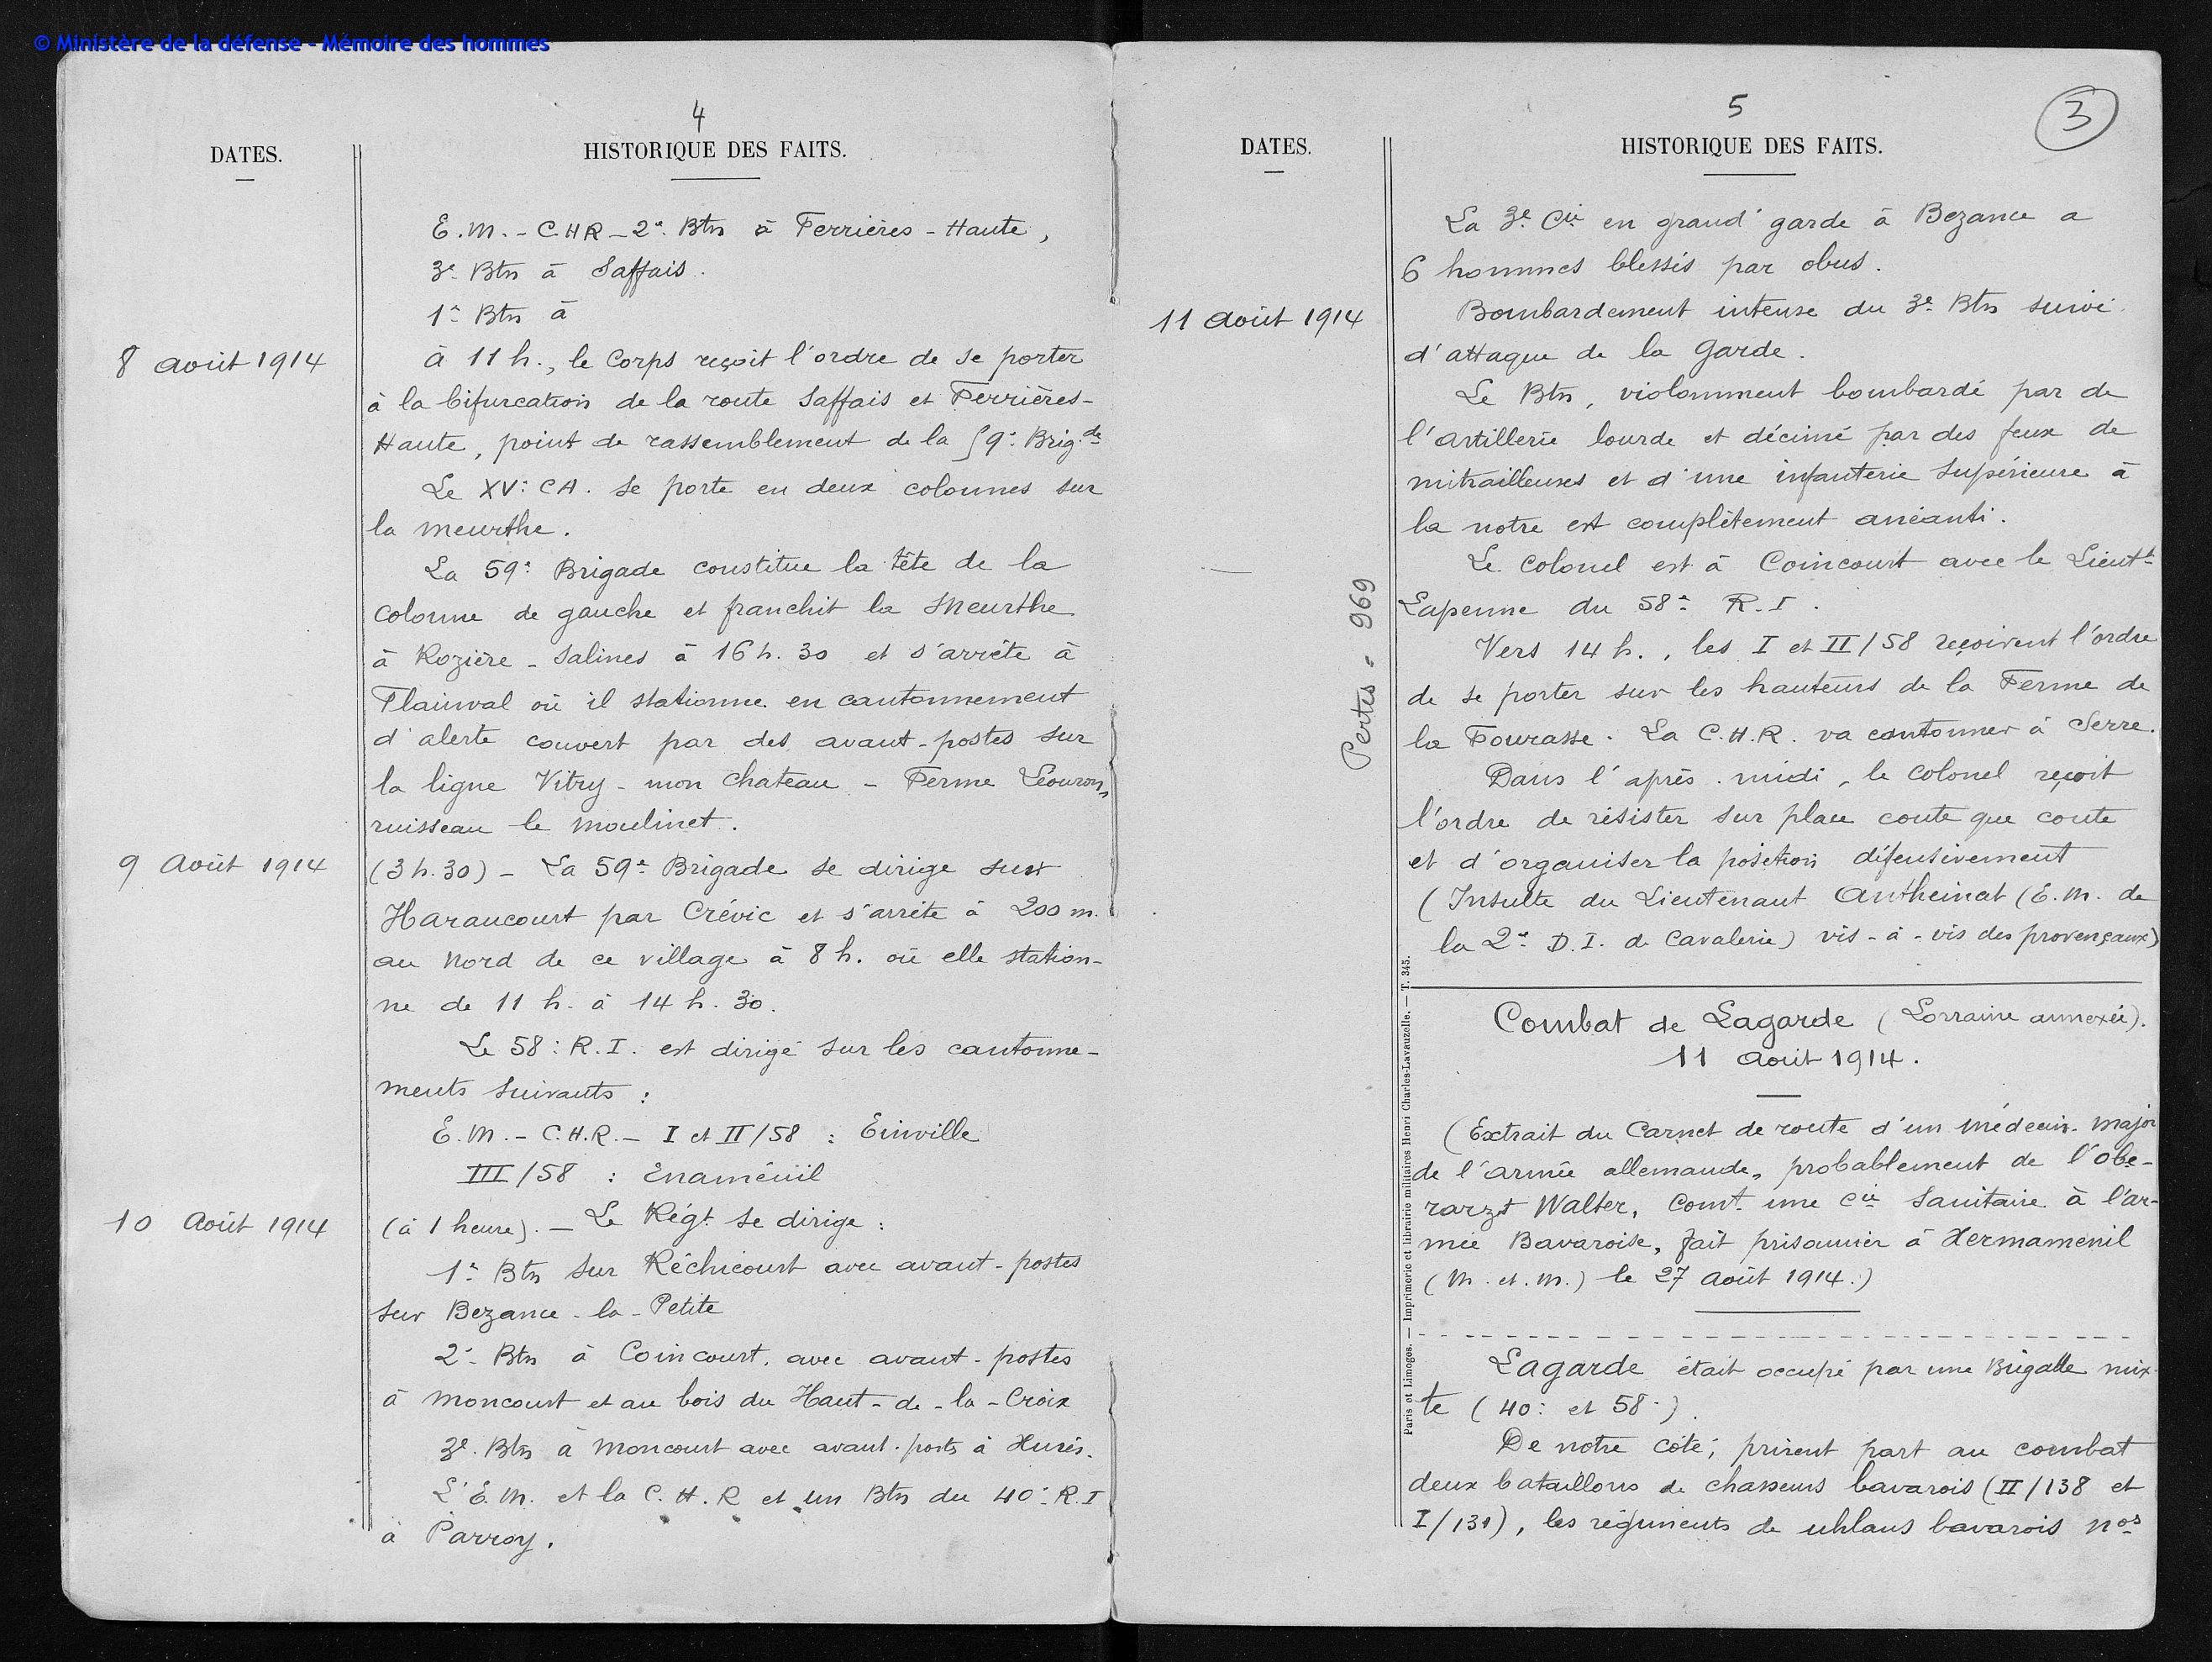 © Ministère de la défense - Mémoire des hommes
4
DATES.
HISTORIQUE DES FAITS.
E.M. - C.H.R - 2e Btn à Ferrières - Haute,
3e Btn à Saffais.
1er Btn à
8 août 1914
à 11 h., le Corps reçoit l'ordre de se porter
à la bifurcation de la route Saffais et Ferrières-
Haute, point de rassemblement de la 59e Brigde
Le XVe CA. se porte en deux colonnes sur
la meurthe.
La 59e Brigade constitue la tête de la
colonne de gauche et franchit la Meurthe
à Rozière - Salines à 16 h. 30 et s'arrête à
Flainval où il stationne en cantonnement
d'alerte couvert par des avant-postes sur
la ligne Vitry - mon chateau - Ferme Léouron,
ruisseau le moulinet.
9 Août 1914
(3 h. 30) - La 59e Brigade se dirige sur
Haraucourt par Crévic et s'arrête à 200 m.
au Nord de ce village à 8 h. où elle station-
ne de 11 h. à 14 h. 30.
Le 58e R.I. est dirigé sur les cantonne-
ments suivants :
E.M. - C.H.R. - I et II/58 : Einville
III/58 : Enaménil
10 Août 1914
(à 1 heure). - Le Régt se dirige :
1er Btn sur Réchicourt avec avant-postes
sur Bezance-la-Petite
2e Btn à Coincourt, avec avant-postes
à Moncourt et au bois du Haut-de-la-Croix
3e Btn à Moncourt avec avant-posts à Xurés.
L'E.M. et la C.H.R et un Btn du 40e R.I
à Parroy.
5
3
DATES.
HISTORIQUE DES FAITS.
La 3e Cie en grand'garde à Bezance a
6 hommes blessés par obus.
11 août 1914
Bombardement intense du 3e Btn suivi
d'attaque de la Garde.
Le Btn, violomment bombardé par de
l'artillerie lourde et décimé par des feux de
mitrailleuses et d'une infanterie supérieure à
la notre est complètement anéanti.
Le Colonel est à Coincourt avec le Lieutt
Lapenne du 58e R.I.
Pertes = 969
Vers 14 h., les I et II/58 reçoivent l'ordre
de se porter sur les hauteurs de la Ferme de
la Fourasse. La C.H.R. va cantonner à Serre.
Dans l'après-midi, le Colonel reçoit
l'ordre de résister sur place coute que coute
et d'organiser la position défensivement
(Insulte du Lieutenant Antheinat (E.M. de
la 2e D.I. de Cavalerie) vis-à-vis des provençaux)
Combat de Lagarde (Lorraine annexée).
11 août 1914.
(Extrait du Carnet de route d'un médecin-major
de l'armée allemande, probablement de l'obe-
rarzt Walter, Comt une Cie Sanitaire à l'ar-
mée Bavaroise, fait prisonnier à Xermamenil
(M. et. M.) le 27 août 1914.)
Lagarde était occupé par une Brigade mix-
te (40e et 58e).
De notre côté, prirent part au combat
deux bataillons de chasseurs bavarois (II/138 et
I/131), les régiments de uhlans bavarois nos
Paris et Limoges. — Imprimerie et librairie militaires Henri Charles-Lavauzelle. — T. 345.